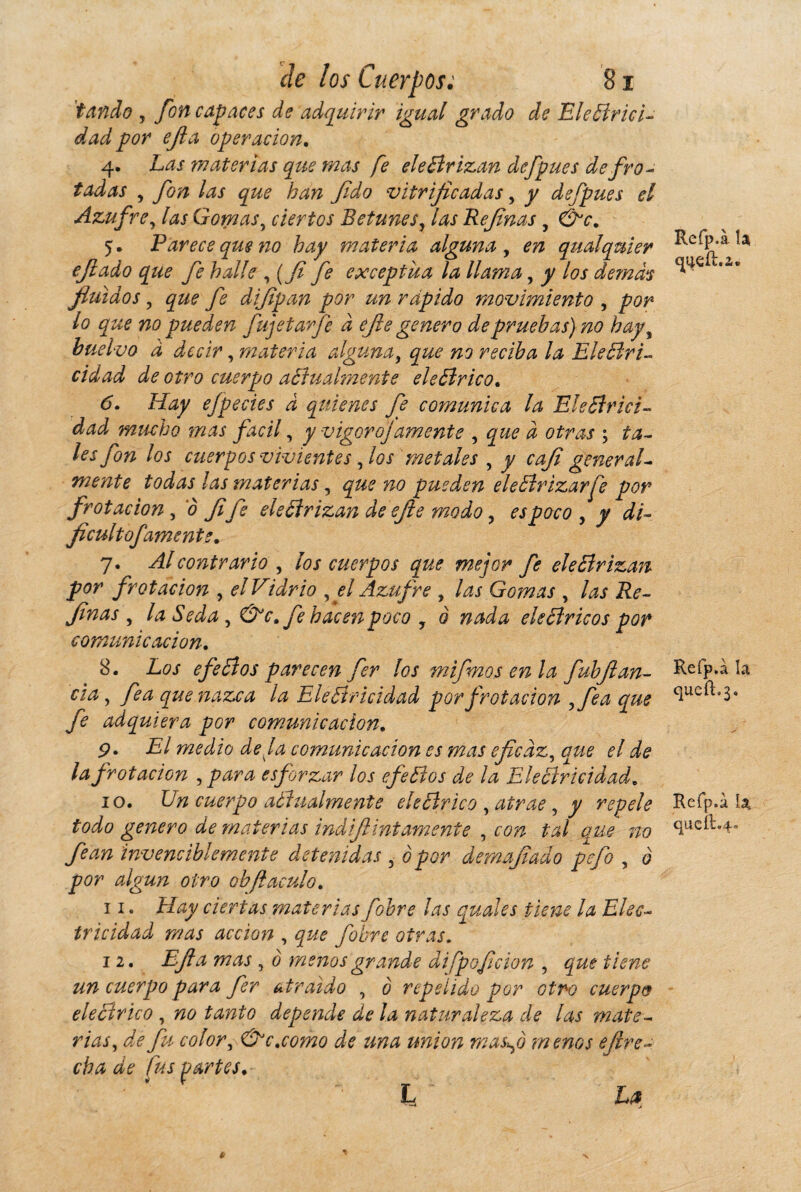 de los Cuerpos. 81
tando , ſon capaces de adquirir igual grado de Electrici-
dad por eſta operacion.
4. Las materias que mas ſe electrizan deſpues de fro-
tadas , ſon las que han ſido vitrificadas, y deſpues el
Azufre, las Gomas, ciertos Betunes, las Reſinas , &c.
5. Parece que no hay materia alguna , en qualquier
eſtado que ſe halle , (ſi ſe exceptùa la llama, y los demàs
fluìdos , que ſe diſipan por un ràpido movimiento , por
lo que no pueden ſujetarſe à eſte genero de pruebas) no hay,
buelvo à decir, materia alguna, que no reciba la Electri-
cidad de otro cuerpo actualmente electrico.
6. Hay eſpecies à quienes ſe comunica la Electrici-
dad mucho mas facil, y vigoroſamente , que à otras ; ta-
les ſon los cuerpos vivientes, los metales , y caſi general-
mente todas las materias, que no pueden electrizarſe por
frotacion , ò ſi ſe electrizan de eſte modo, es poco , y di-
ficultoſamente.
7. Al contrario , los cuerpos que mejor ſe electrizan
por frotacion , el Vidrio , el Azufre , las Gomas , las Re-
ſinas , la Seda , &c. ſe hacen poco , ò nada electricos por
comunicacion.
8. Los efectos parecen ſer los miſmos en la ſubſtan-
cia, ſea que nazca la Electricidad por frotacion , ſea que
ſe adquiera por comunicacion.
9. El medio de la comunicacion es mas eficàz, que el de
la frotacion , para esforzar los efectos de la Electricidad.
10. Un cuerpo actualmente electrico , atrae, y repele
todo genero de materias indiſtintamente , con tal que no
ſean invenciblemente detenidas , ò por demaſiado peſo , ò
por algun otro obſtaculo.
11. Hay ciertas materias ſobre las quales tiene la Elec-
tricidad mas accion , que ſobre otras.
12. Eſta mas , ò menos grande diſpoſicion , que tiene
un cuerpo para ſer atraìdo , ò repelido por otro cuerpo
electrico , no tanto depende de la naturaleza de las mate-
rias, de ſu color, &c.como de una union mas,ò menos eſtre-
cha de ſus partes.
L La
Reſp.à la
queſt.2.
Reſp.à la
queſt.3.
Reſp.à la
queſt.4.